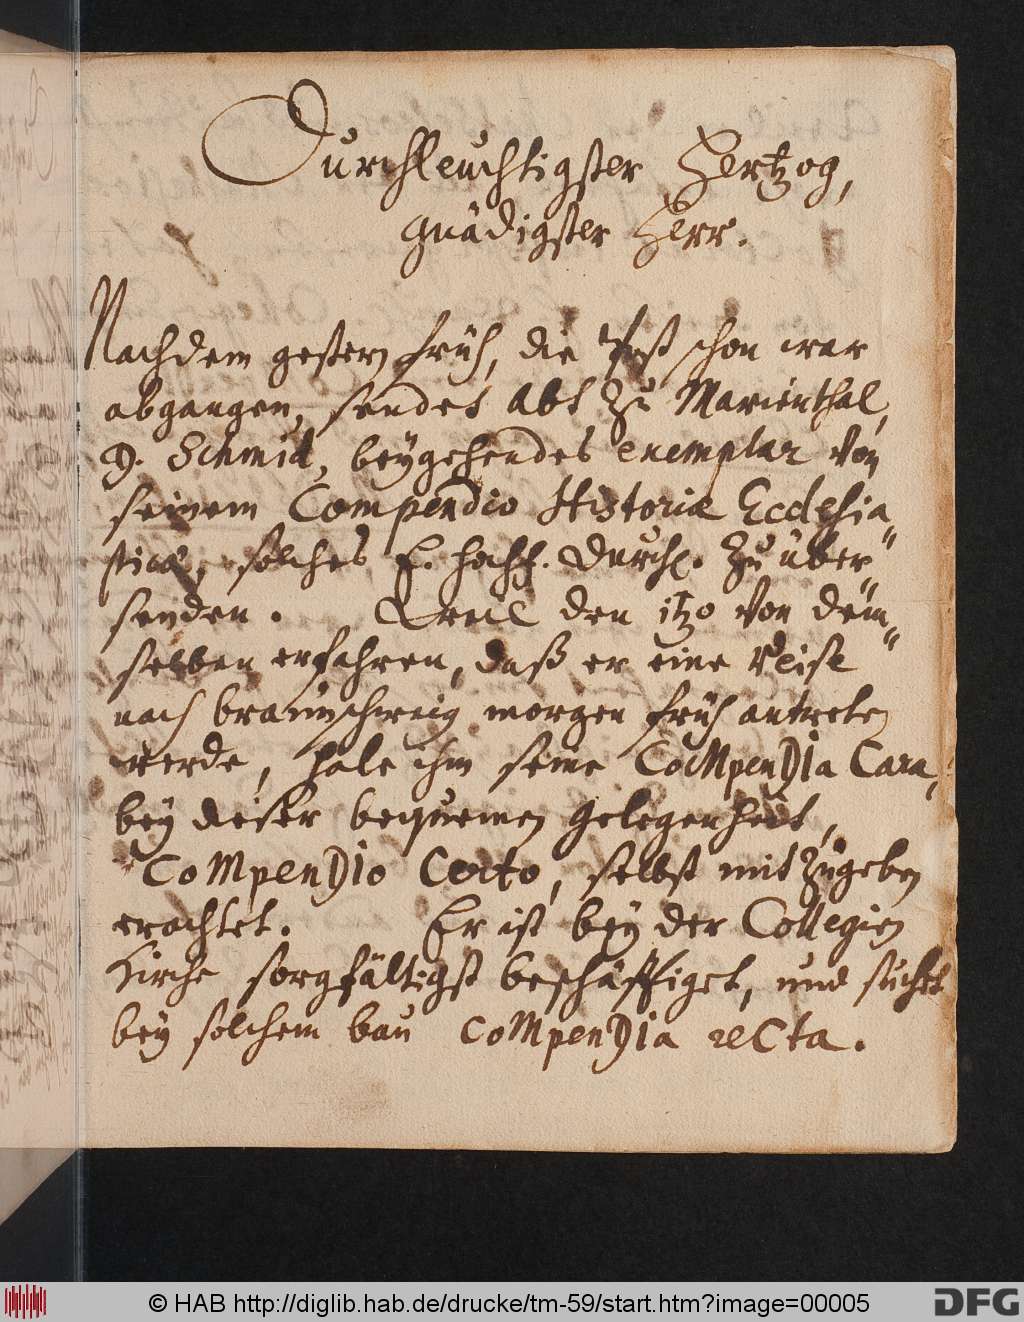 Durchleuchtigster Hertzog,
gnädigster Herr.
Nachdem gestern früh, die Post schon war
abgangen, sendet Abt zu Marienthal,
D. Schmid, beygehendes exemplar von
seinem Compendio Historiæ Ecclesia„
sticæ, solches E. hochf. Durchl. zu über„
senden. Weil den itzo von dem„
selben erfahren, daß er eine Reise
nach braunschweig morgen früh antreten
werde, habe ihm seine CoMpenDIa Cara,
bey dieser bequemen gelegenheit,
CoMpenDIo Certo, selbst mit zugeben
erachtet. Er ist bey der Collegien
Kirche sorgfältigst beschäfftiget, und suchet
bey solchem bau CoMpenDIa reCta.
© HAB http://diglib.hab.de/drucke/tm-59/start.htm?image=00005
DFG